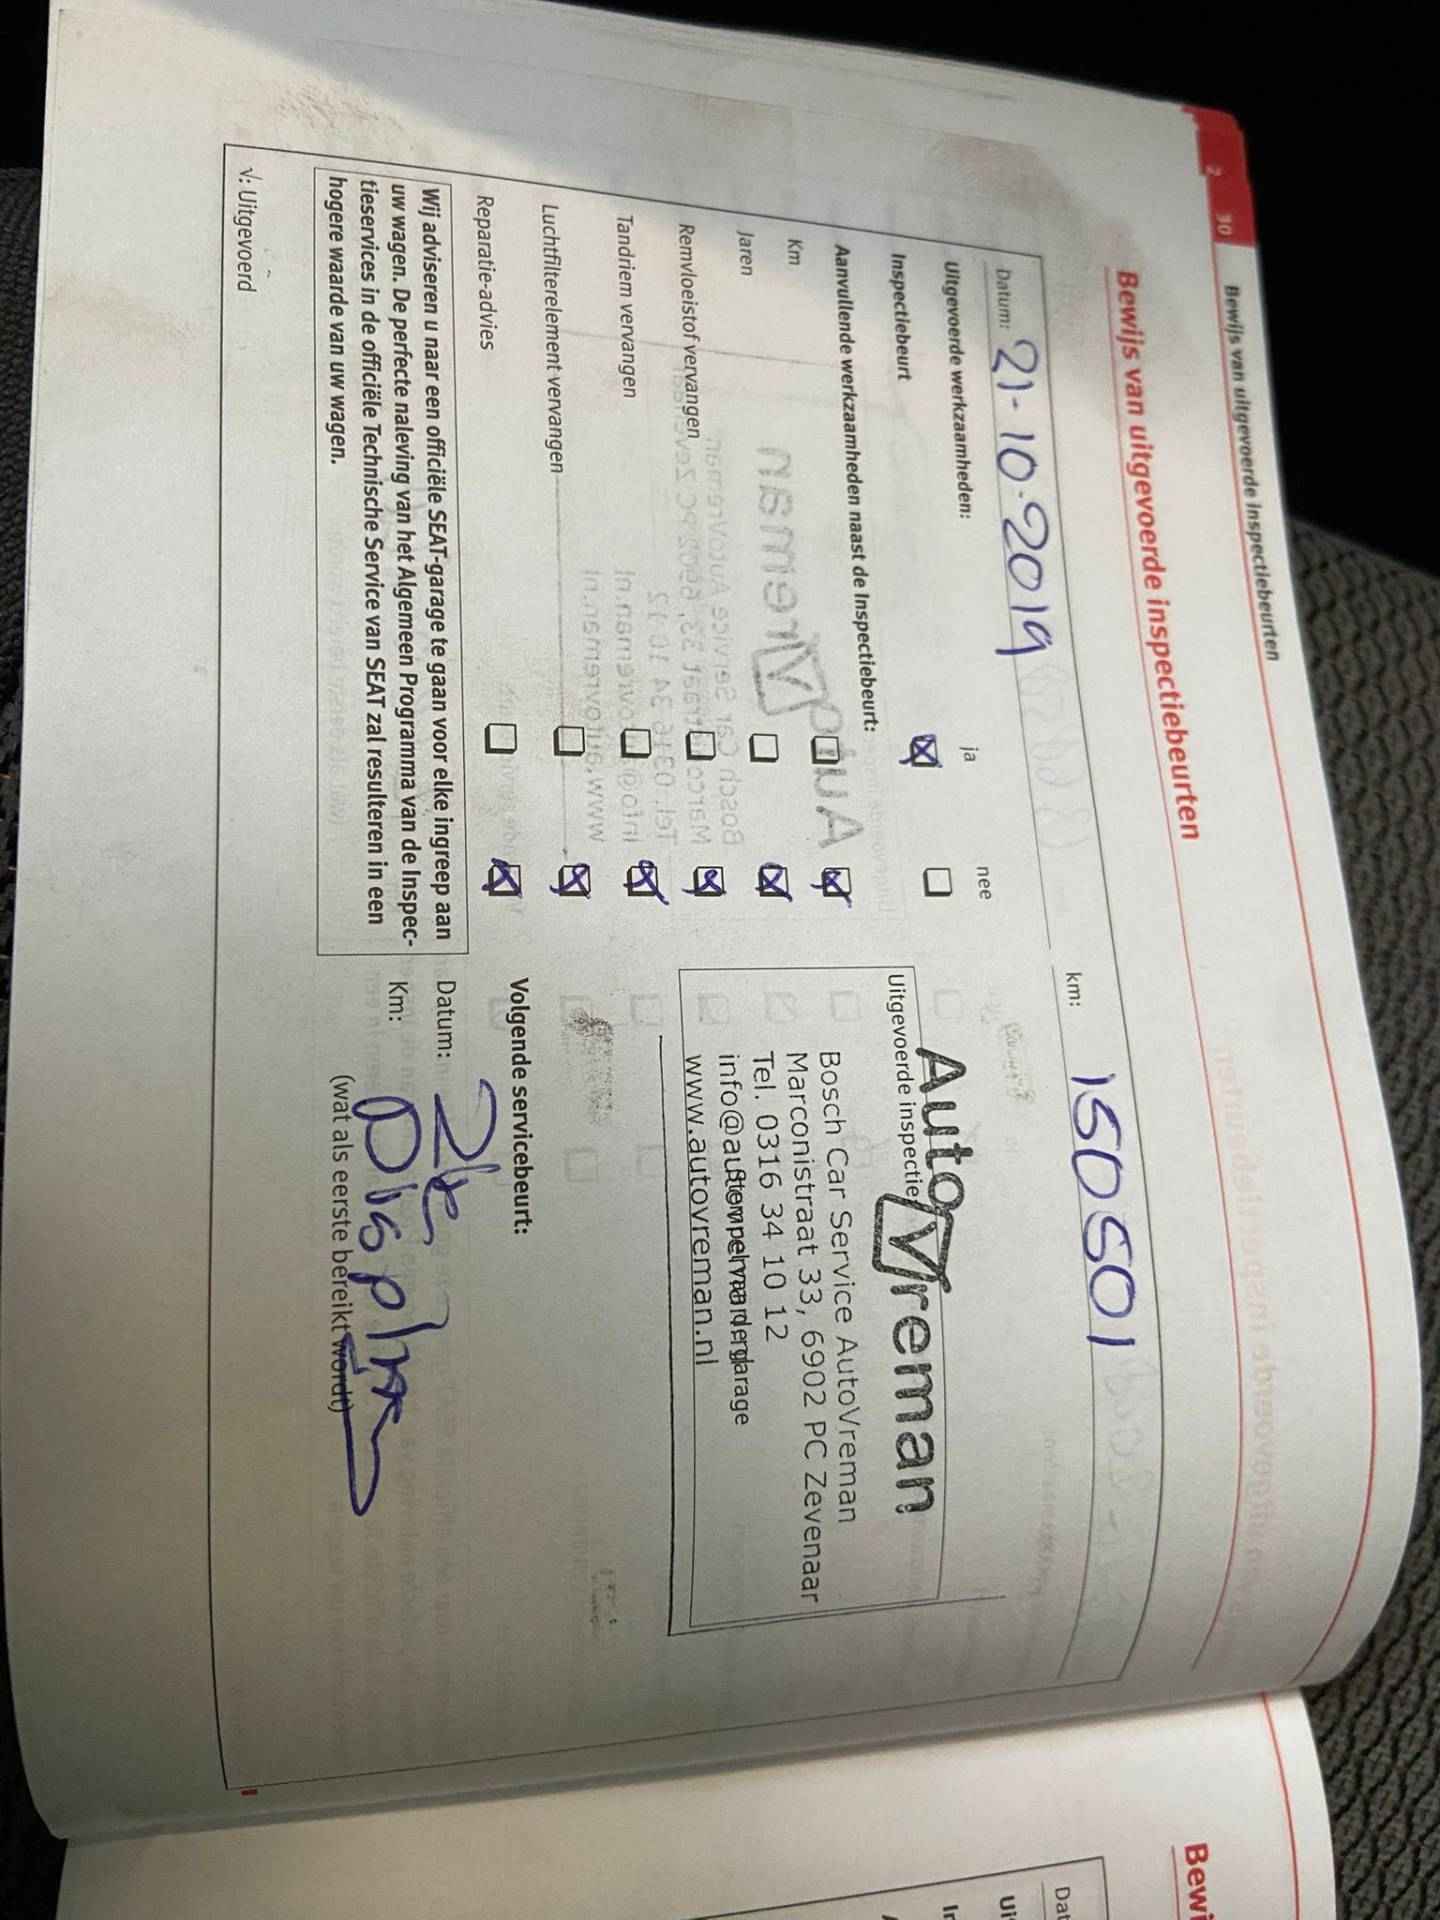 2 30 Bewijs van uitgevoerde inspectiebeurten
Bewijs van uitgevoerde inspectiebeurten
Datum: 21-10-2019 km: 150501
Uitgevoerde werkzaamheden: ja nee
Inspectiebeurt
Aanvullende werkzaamheden naast de Inspectiebeurt:
Km
Jaren
Remvloeistof vervangen
Tandriem vervangen
Luchtfilterelement vervangen
Reparatie-advies
Wij adviseren u naar een officiële SEAT-garage te gaan voor elke ingreep aan
uw wagen. De perfecte naleving van het Algemeen Programma van de Inspec-
tieservices in de officiële Technische Service van SEAT zal resulteren in een
hogere waarde van uw wagen.
√: Uitgevoerd
AutoVreman
Uitgevoerde inspectie
Bosch Car Service AutoVreman
Marconistraat 33, 6902 PC Zevenaar
Tel. 0316 34 10 12
info@autovreman.nl
Stempel van de garage
www.autovreman.nl
Volgende servicebeurt:
Datum: zie
Km: Display
(wat als eerste bereikt wordt)
Bewi
Dat
Ui
In